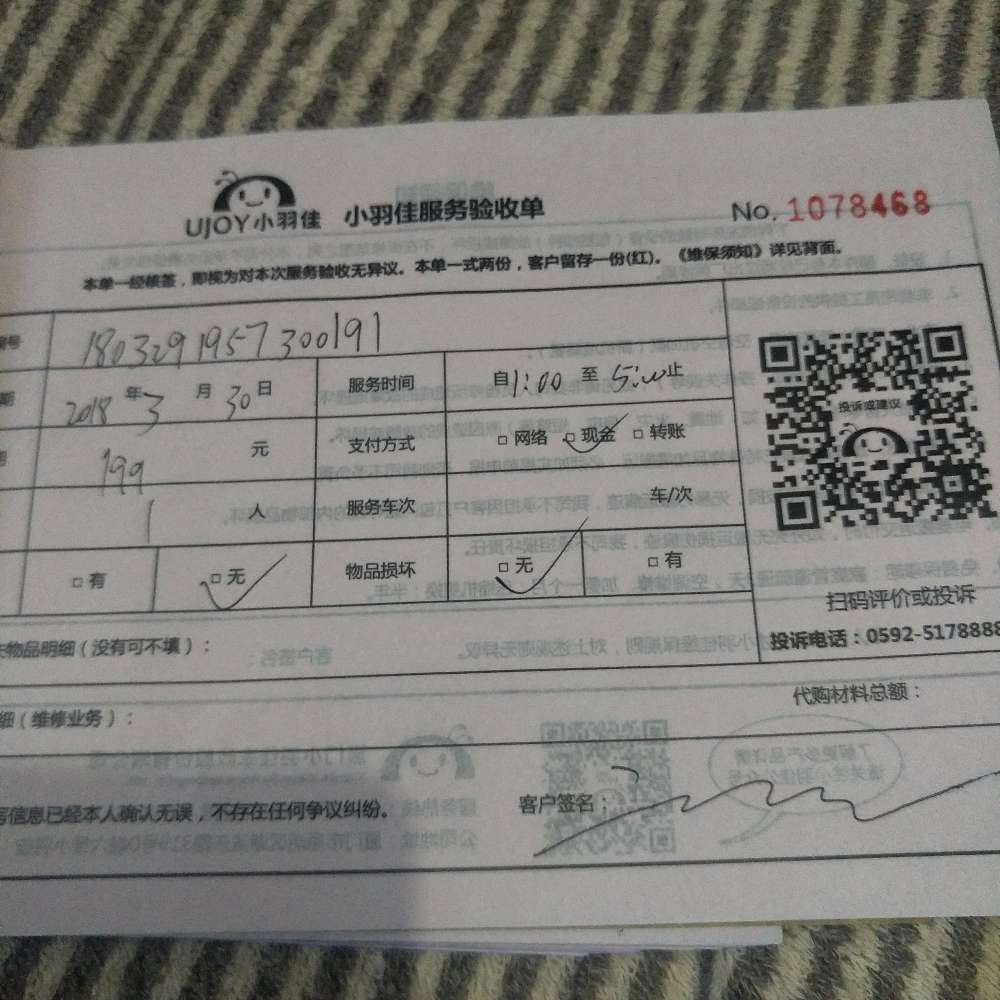 UJOY小羽佳 小羽佳服务验收单 No. 1078468
本单一经核签，即视为对本次服务验收无异议。本单一式两份，客户留存一份(红)。《维保须知》详见背面。
编号 1803291957300191
期 2018 年 3 月 30 日 服务时间 自 1:00 至 5:00 止
199 元 支付方式 □ 网络 □ 现金 □ 转账
1 人 服务车次 车/次
□ 有 □ 无 物品损坏 □ 无 □ 有
投诉或建议
扫码评价或投诉
投诉电话：0592-5178888
物品明细（没有可不填）：
细（维修业务）： 代购材料总额：
信息已经本人确认无误，不存在任何争议纠纷。 客户签名：